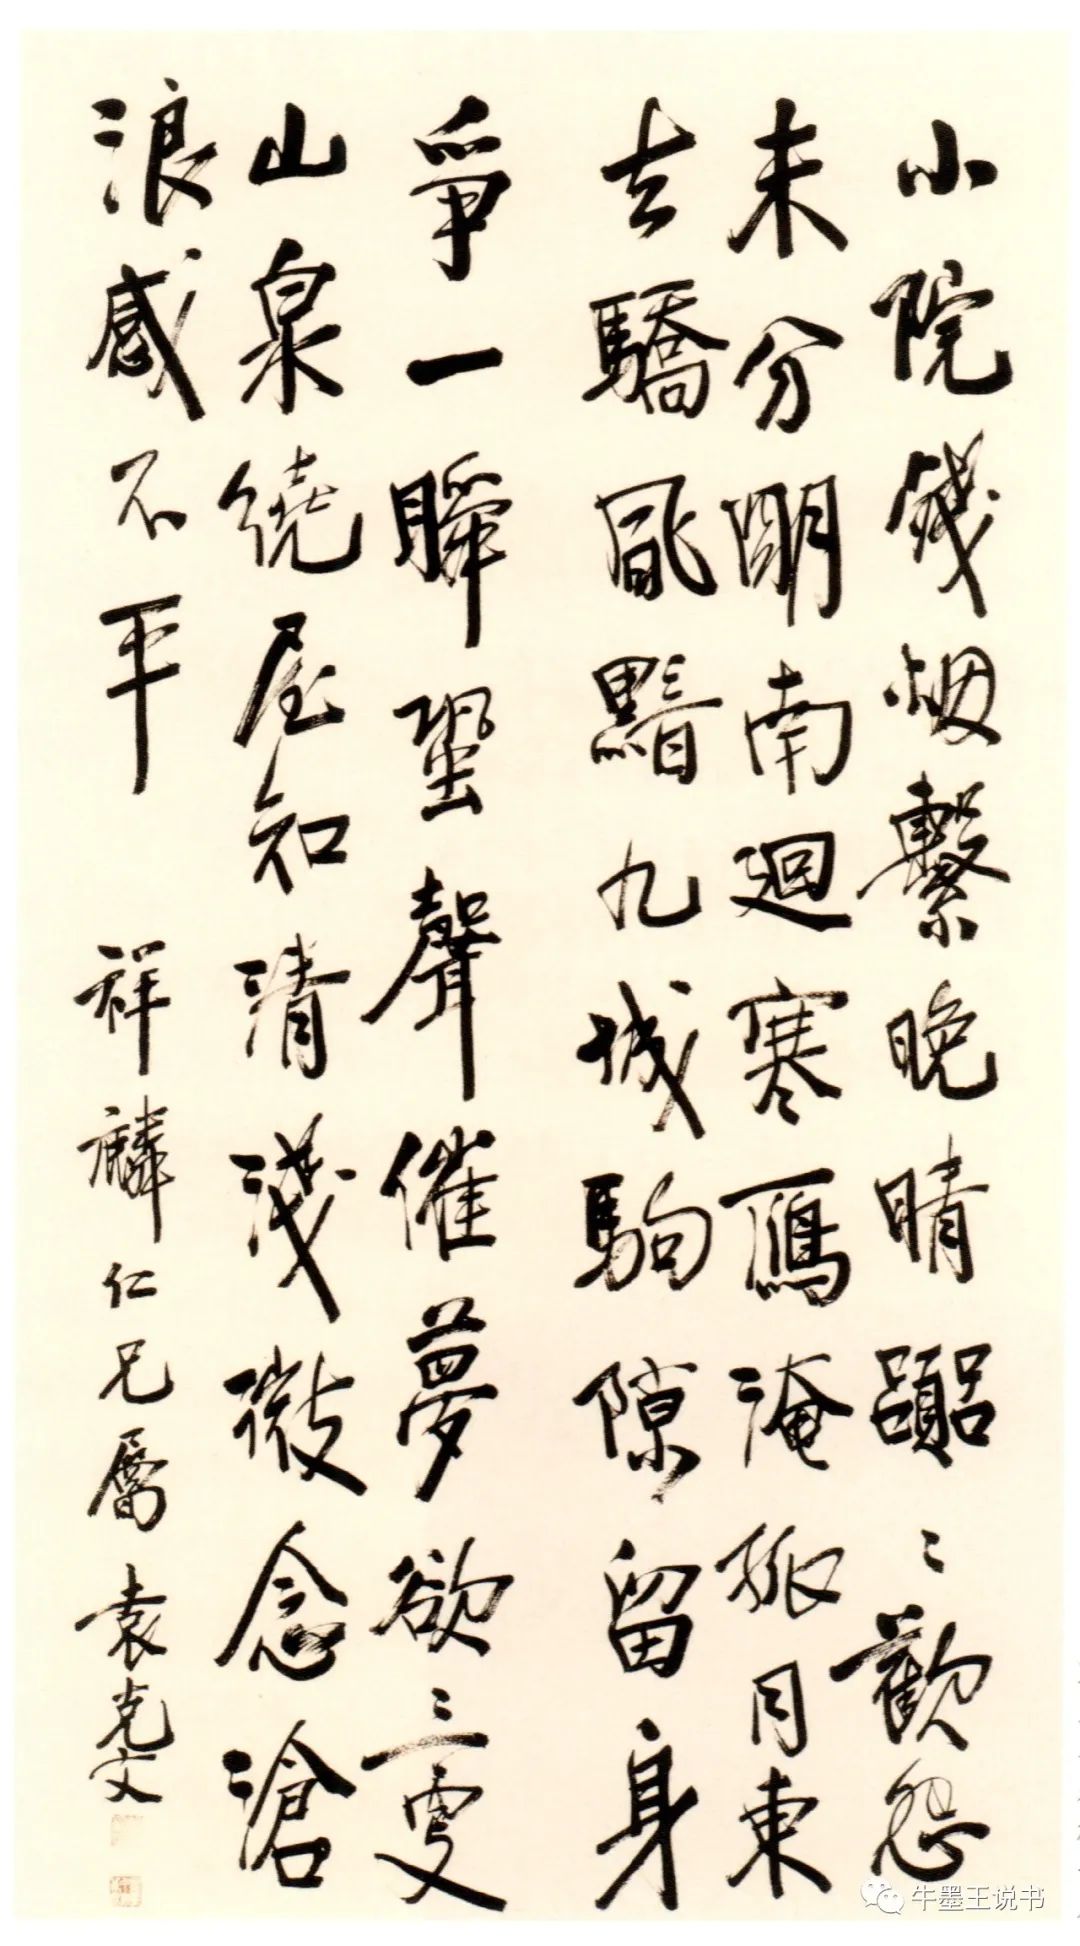 小院殘烟繫晚晴囂〻歡怨
未分明南迴寒鴈淹孤月東
去驕風黯九城駒隙留身
爭一瞬蛩聲催夢欲三更
山泉繞屋知清淺微念滄
浪感不平 祥麟仁兄屬 袁克文
牛墨王说书